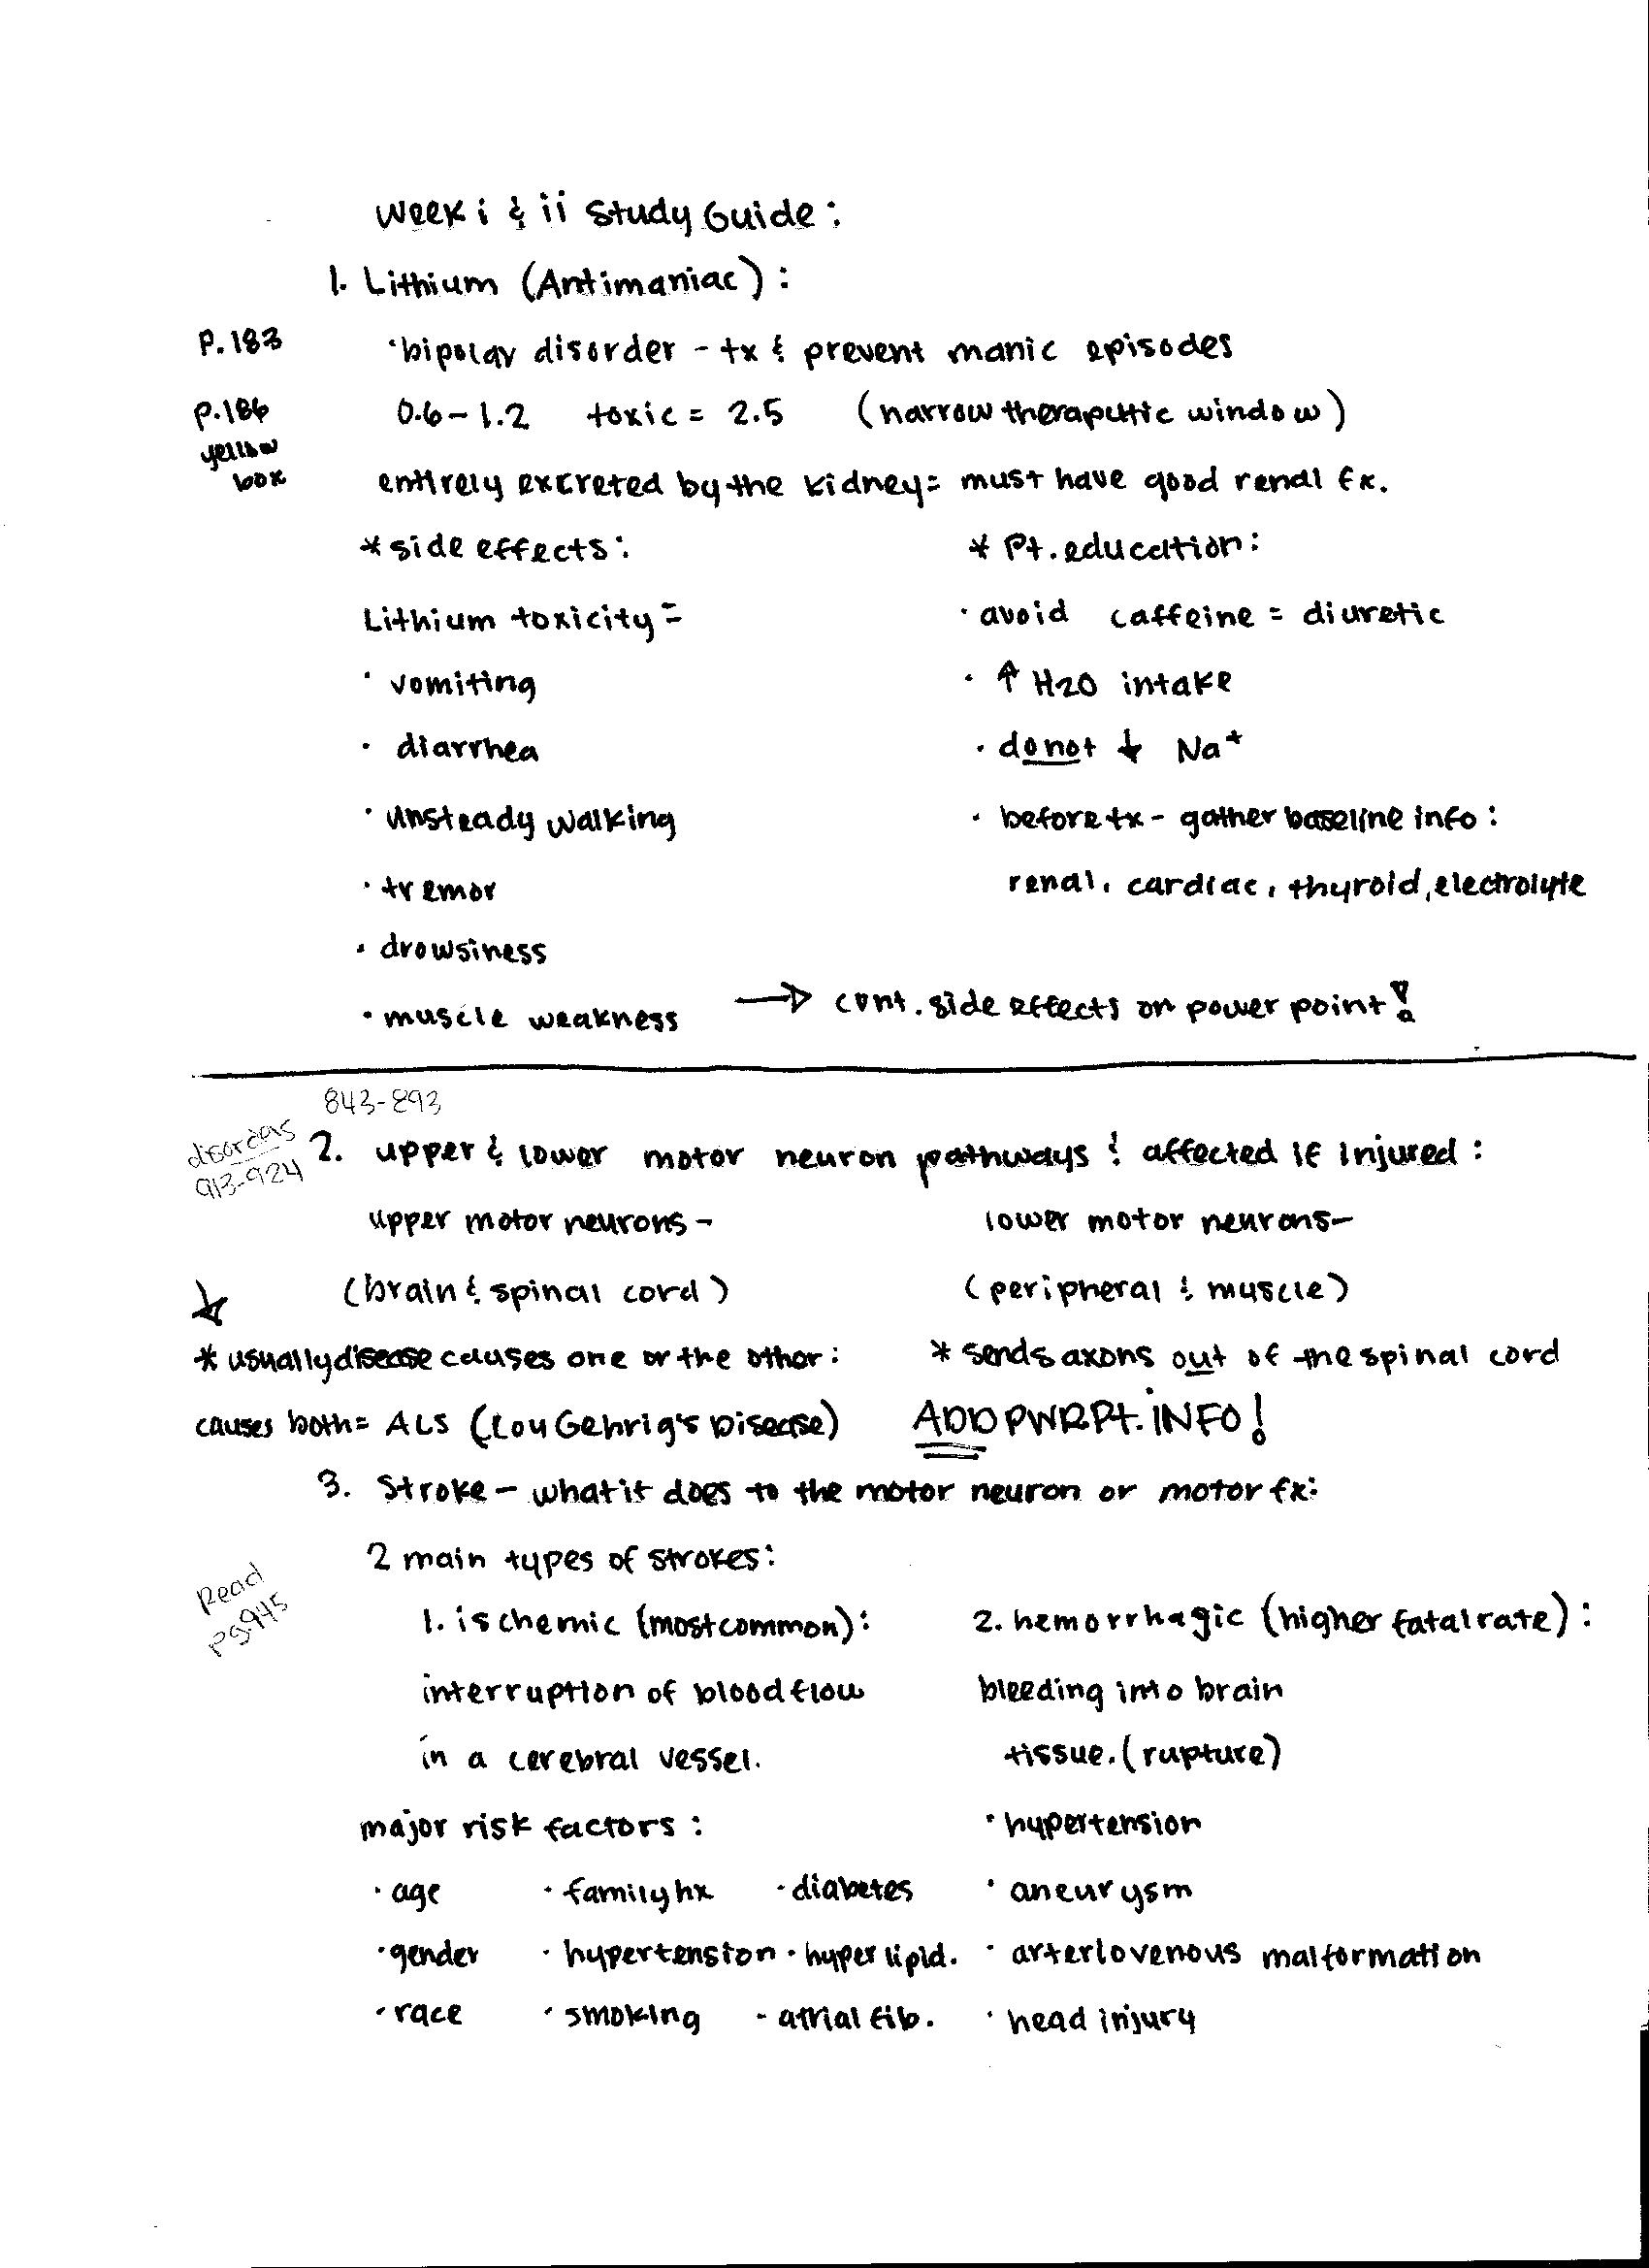 Week i & ii Study Guide:
1. Lithium (Antimaniac):
P.183 · bipolar disorder - tx & prevent manic episodes
p.186 0.6-1.2 toxic = 2.5 (narrow theraputtic window)
yellow
box entirely excreted by the kidney = must have good renal fx.
* side effects: * Pt. education:
Lithium toxicity = · avoid caffeine = diuretic
· vomiting · ↑ H2O intake
· diarrhea · do not ↓ Na+
· unsteady walking · before tx - gather baseline info:
· tremor renal, cardiac, thyroid, electrolyte
· drowsiness
· muscle weakness → cont. side effects on power point!
843-893
disorders
913-924
2. upper & lower motor neuron pathways & affected if injured:
upper motor neurons - lower motor neurons-
(brain & spinal cord) (peripheral & muscle)
↓
* usually disease causes one or the other: * sends axons out of the spinal cord
causes both = ALS (Lou Gehrig's Disease) ADD PWRPt. INFO!
3. Stroke - what it does to the motor neuron or motor fx:
2 main types of strokes:
Read
Pg-945
1. ischemic (most common): 2. hemorrhagic (higher fatal rate):
interruption of blood flow bleeding into brain
in a cerebral vessel. tissue. (rupture)
major risk factors: · hypertension
· age · family hx · diabetes · aneurysm
· gender · hypertension · hyperlipid. · arteriovenous malformation
· race · smoking · atrial fib. · head injury